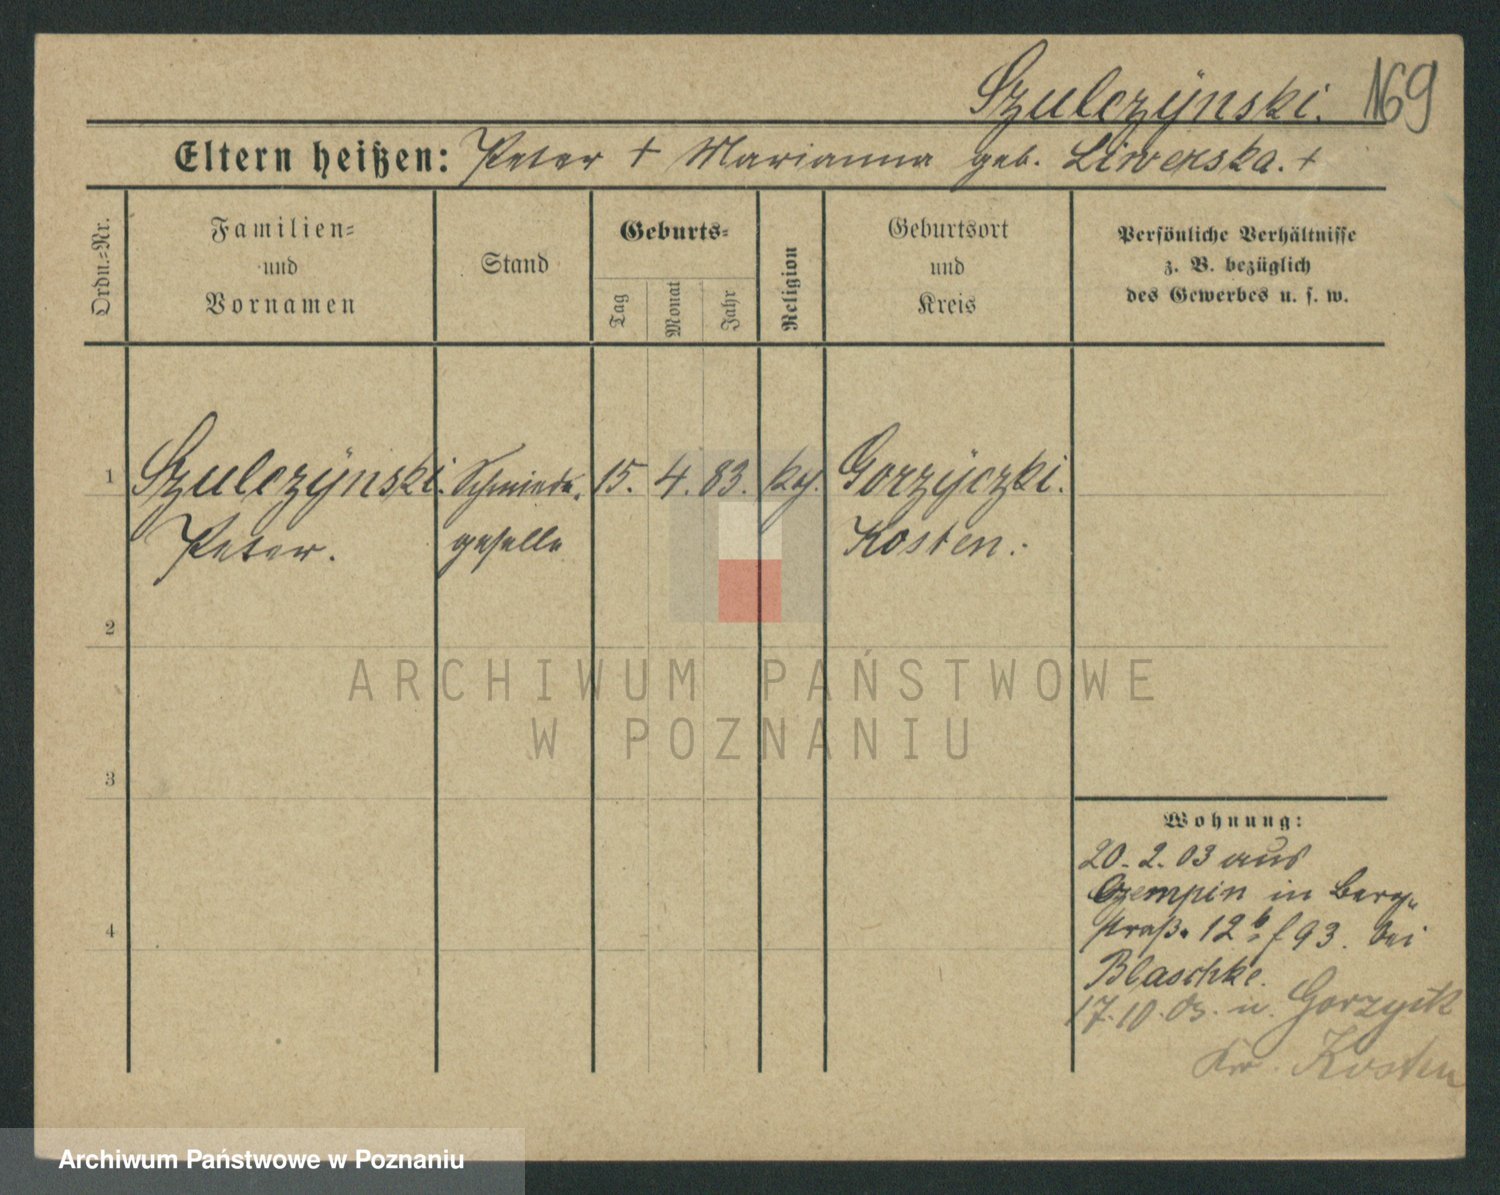 Szulczÿnski. 169
Eltern heißen: Peter + Marianna geb. Liwerska. +
Ordn.=Nr.
Familien=
und
Vornamen
Stand
Geburts=
Tag
Monat
Jahr
Religion
Geburtsort
und
Kreis
Persönliche Verhältnisse
z. B. bezüglich
des Gewerbes u. s. w.
1 Szulczÿnski. Schmiede- 15. 4. 83. kg. Gorzÿczki.
Peter. geselle Kosten.
2
3
4
Wohnung:
20. 2. 03 aus
Czempin in Berg-
straße 12b f 93. bei
Blaschke.
17.10.03. n. Gorzycki
Kr. Kosten
ARCHIWUM PAŃSTWOWE
W POZNANIU
Archiwum Państwowe w Poznaniu